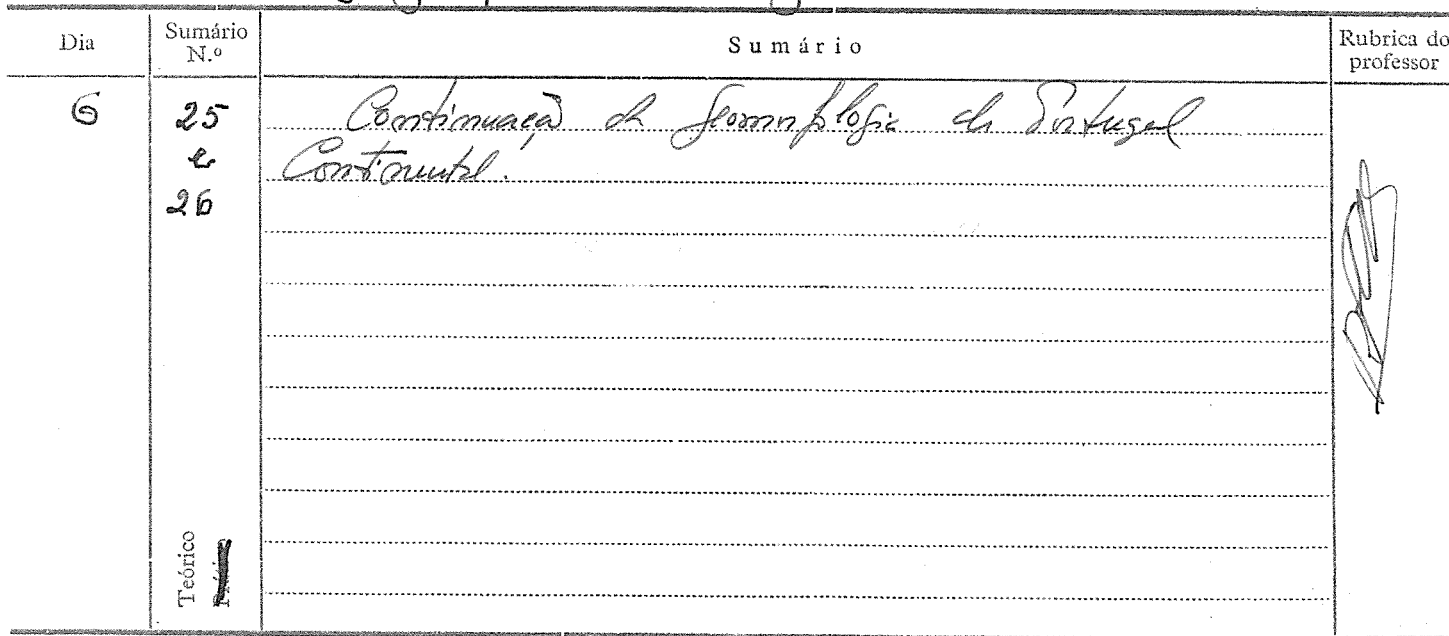 Dia
Sumário N.º
Sumário
Rubrica do professor
6
25
e
26
Continuação da Geomorfologia de Portugal
Continental.
Teórico